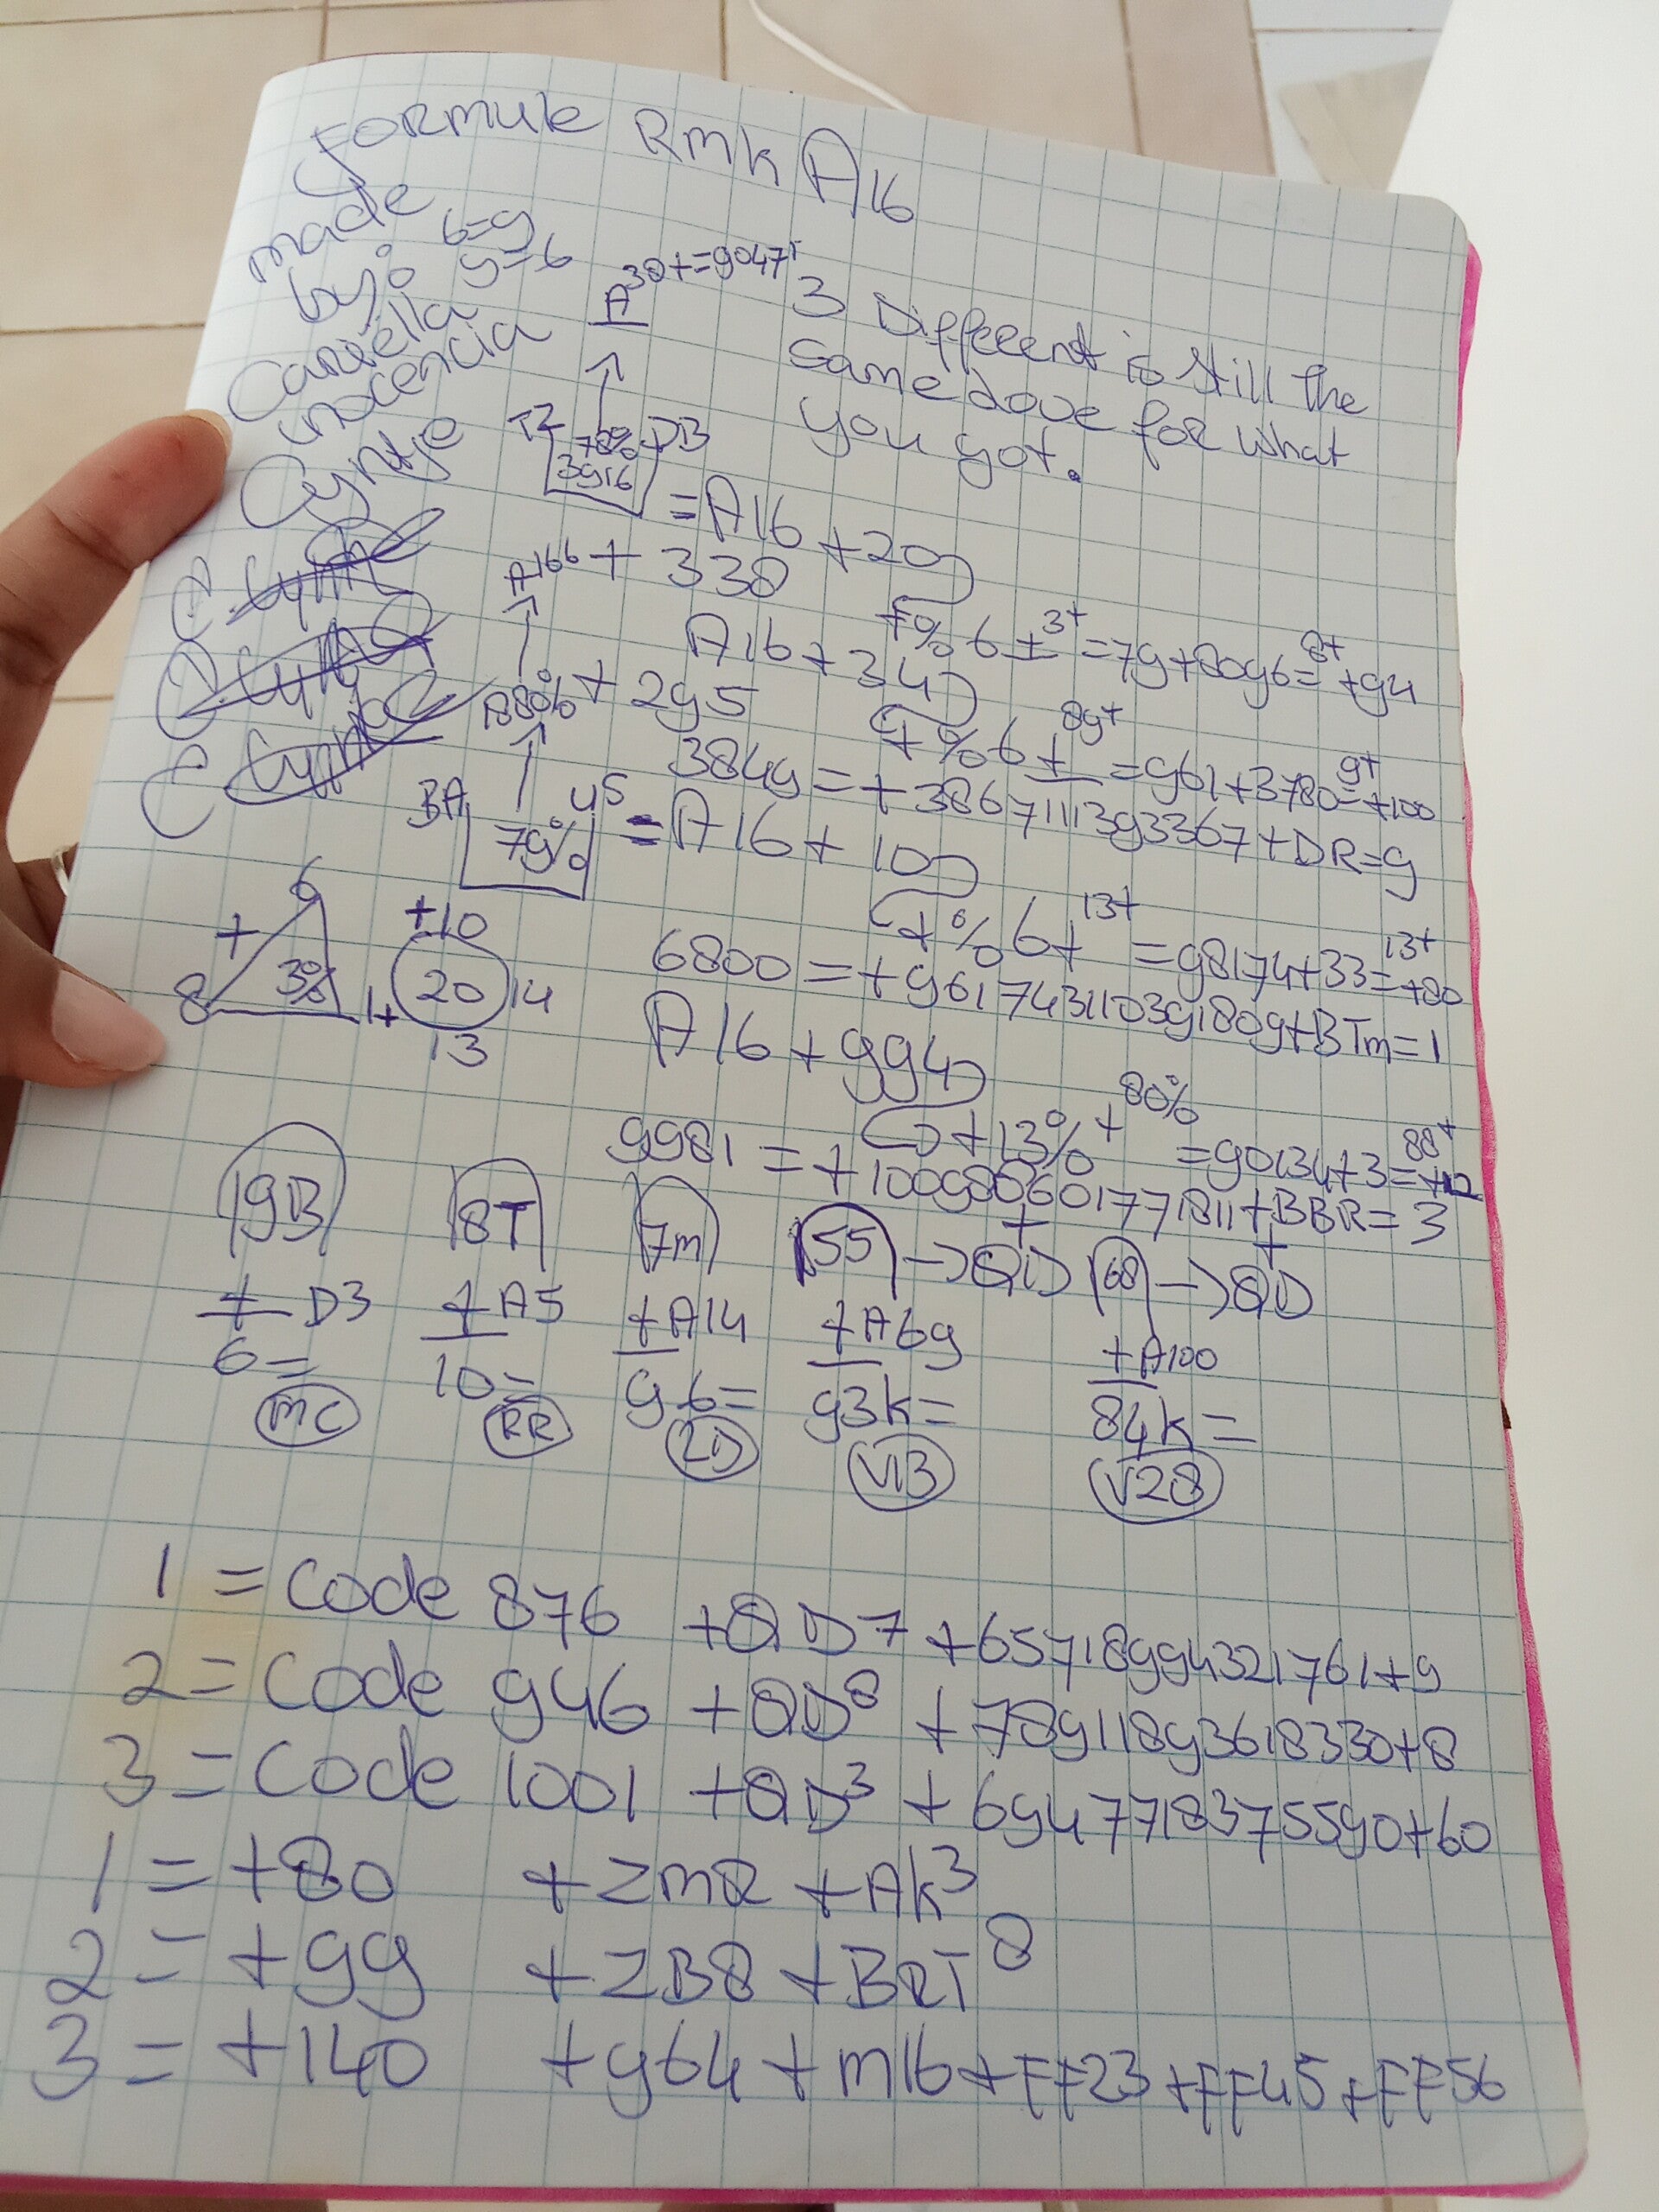 Formule Rmk A16
made
by:
6=9
9=6
Carvella
inocencia
Cyntje
A 38+=9047+
3 Different is still the
same dove for what
you got.
TZ 78% DB
3916
=A16+20
A166 + 338
+% 6 ± 3+ =79+8096= 8+ +94
A16+34
A88% + 295
+% 6 + 89+ =961+3780= 9+ +100
3849=+3867111393367+DR=9
BA 79% 45 =A16+10
+% 6+ 13+ =98174+33= 13+ +80
6800=+961743110391809+BTm=1
6
+
8 3% 1+
+10
20 14
13
A16+994
+13%+ 80% =90134+3= 88+
9981=+100980601771811+BBR=3
19B 8T 7m 55 → QD + 68 → QD +
+ D3 +A5 +A14 +A69 +A100
6= 10= 96= 93k= 84k=
MC RR 2D V13 V28
1 = Code 876 +QD7 +65718994321761+9
2 = Code 946 +QD8 +78911893618330+8
3 = Code 1001 +QD3 +69477183755590+60
1 = +80 +ZMR +Ak3
2 = +99 +ZB8 +BRT8
3 = +140 +964+M16+FF23+FF45+FF56